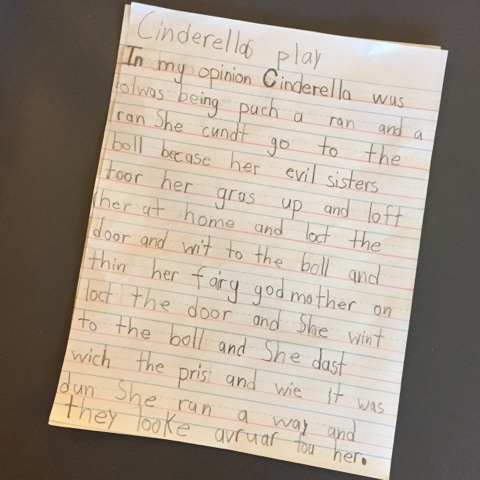 Cinderellas play
In my opinion Cinderella wus
olwas being puch a ran and a
ran She cundt go to the
boll becase her evil sisters
toor her gras up and loft
her at home and loct the
door and wit to the boll and
thin her fairy godmother on
loct the door and She wint
to the boll and She dast
wich the pris and wie it was
dun She ran a way and
they looke avruar fou her.